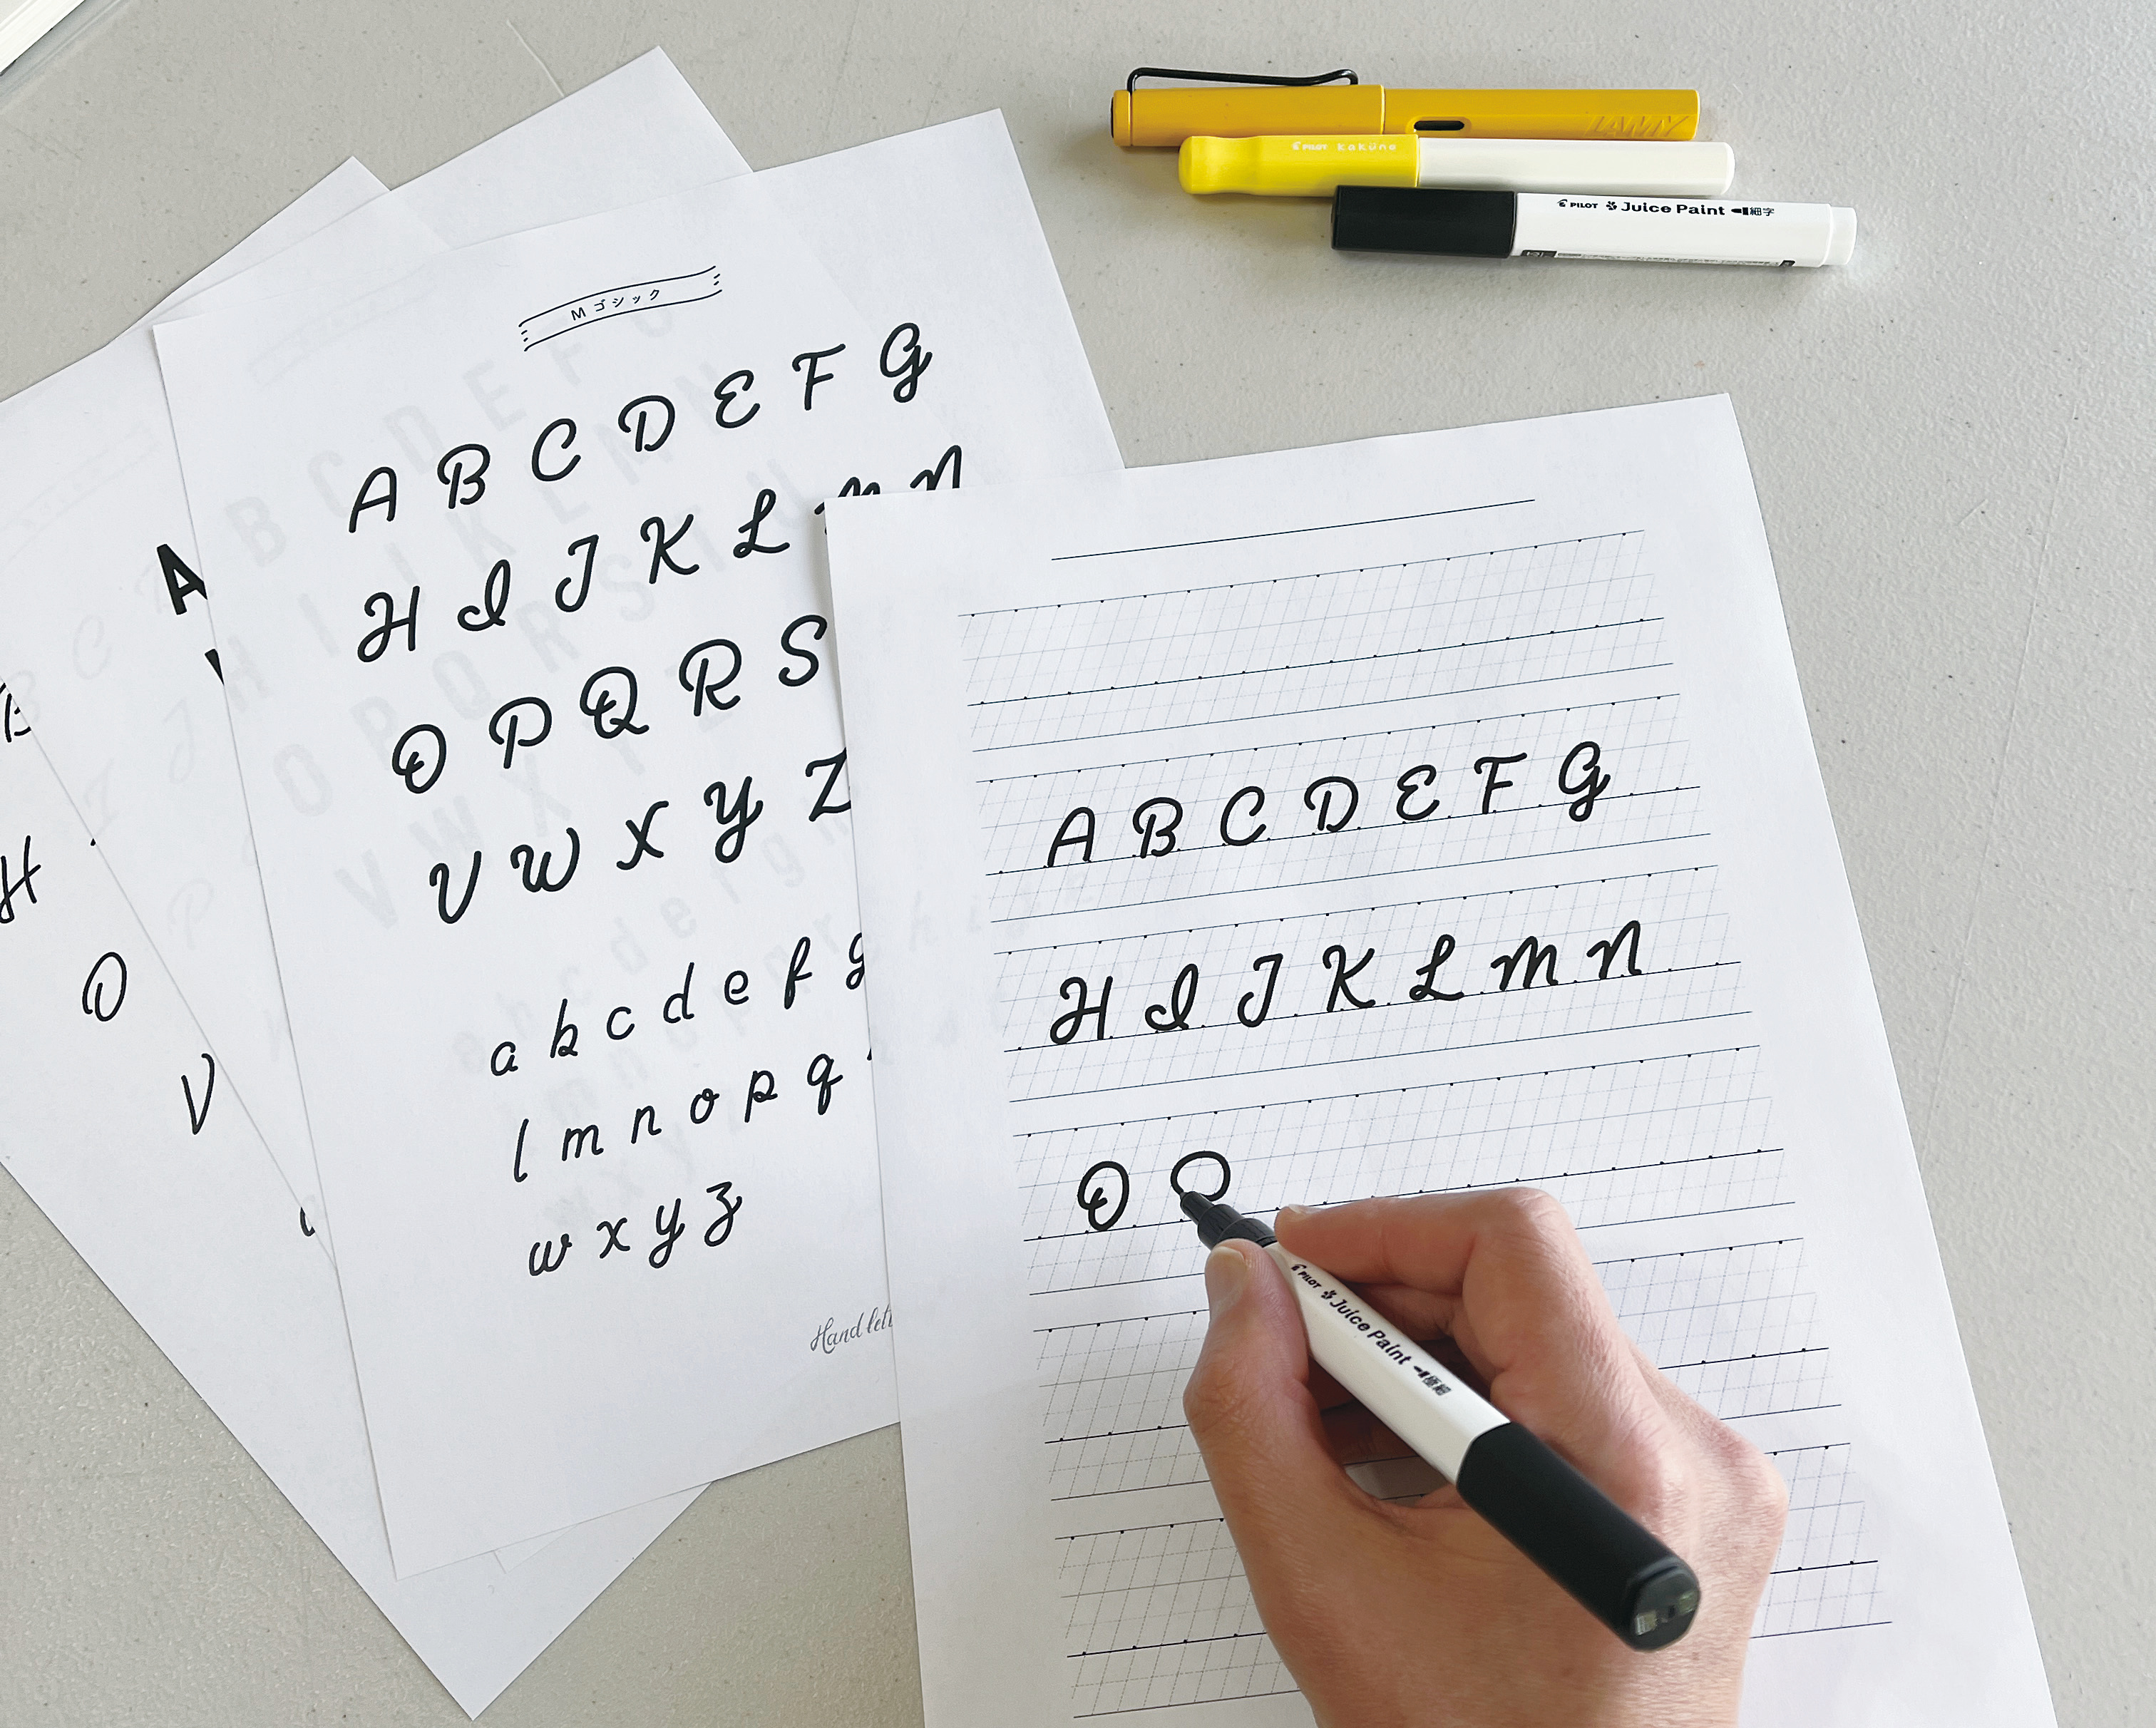 LAMY
PILOT kaküno
PILOT Juice Paint 細字
Mゴシック
A B C D E F G
H I J K L M N
O P Q R S
V W X Y Z
a b c d e f g
l m n o p q
w x y z
Hand
A
B
H
O
V
A B C D E F G
H I J K L M N
O
PILOT Juice Paint 極細